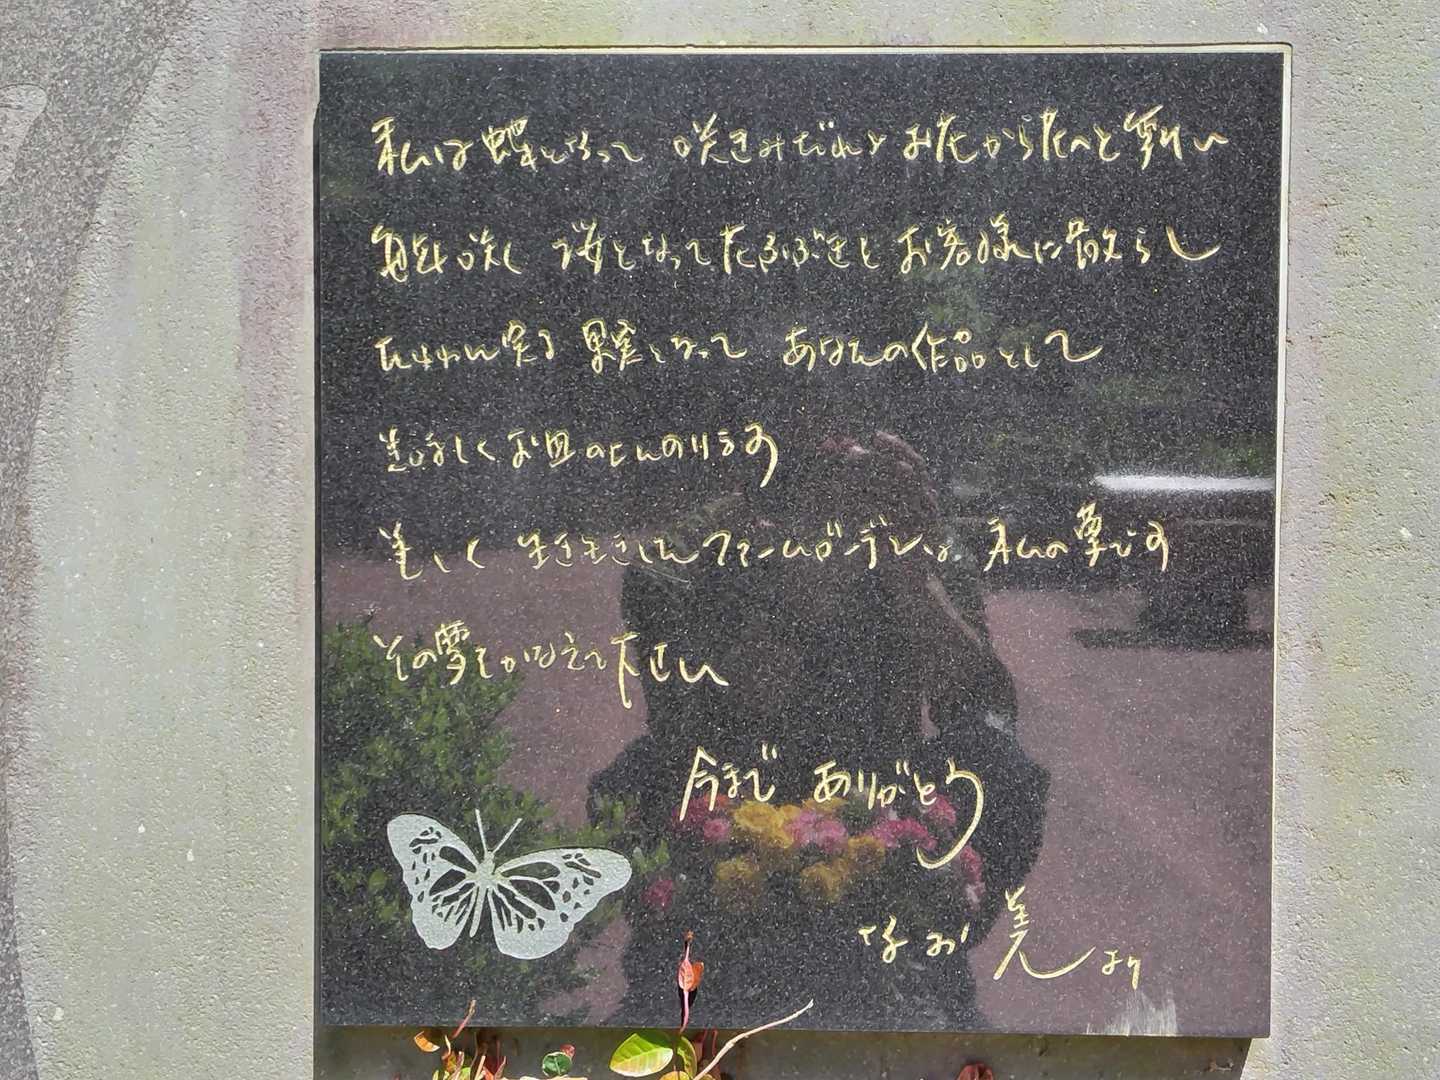 私は蝶となって 咲きみだれる お花から花へと舞い
毎年咲く 桜となって 花ふぶきと お客様に散らし
たわわに実る 果実となって あなたの作品として
美味しくお皿の上にのります
美しく 生き生きした ファームガーデンは 私の夢です
その夢をかなえて下さい
今まで ありがとう
なお美より